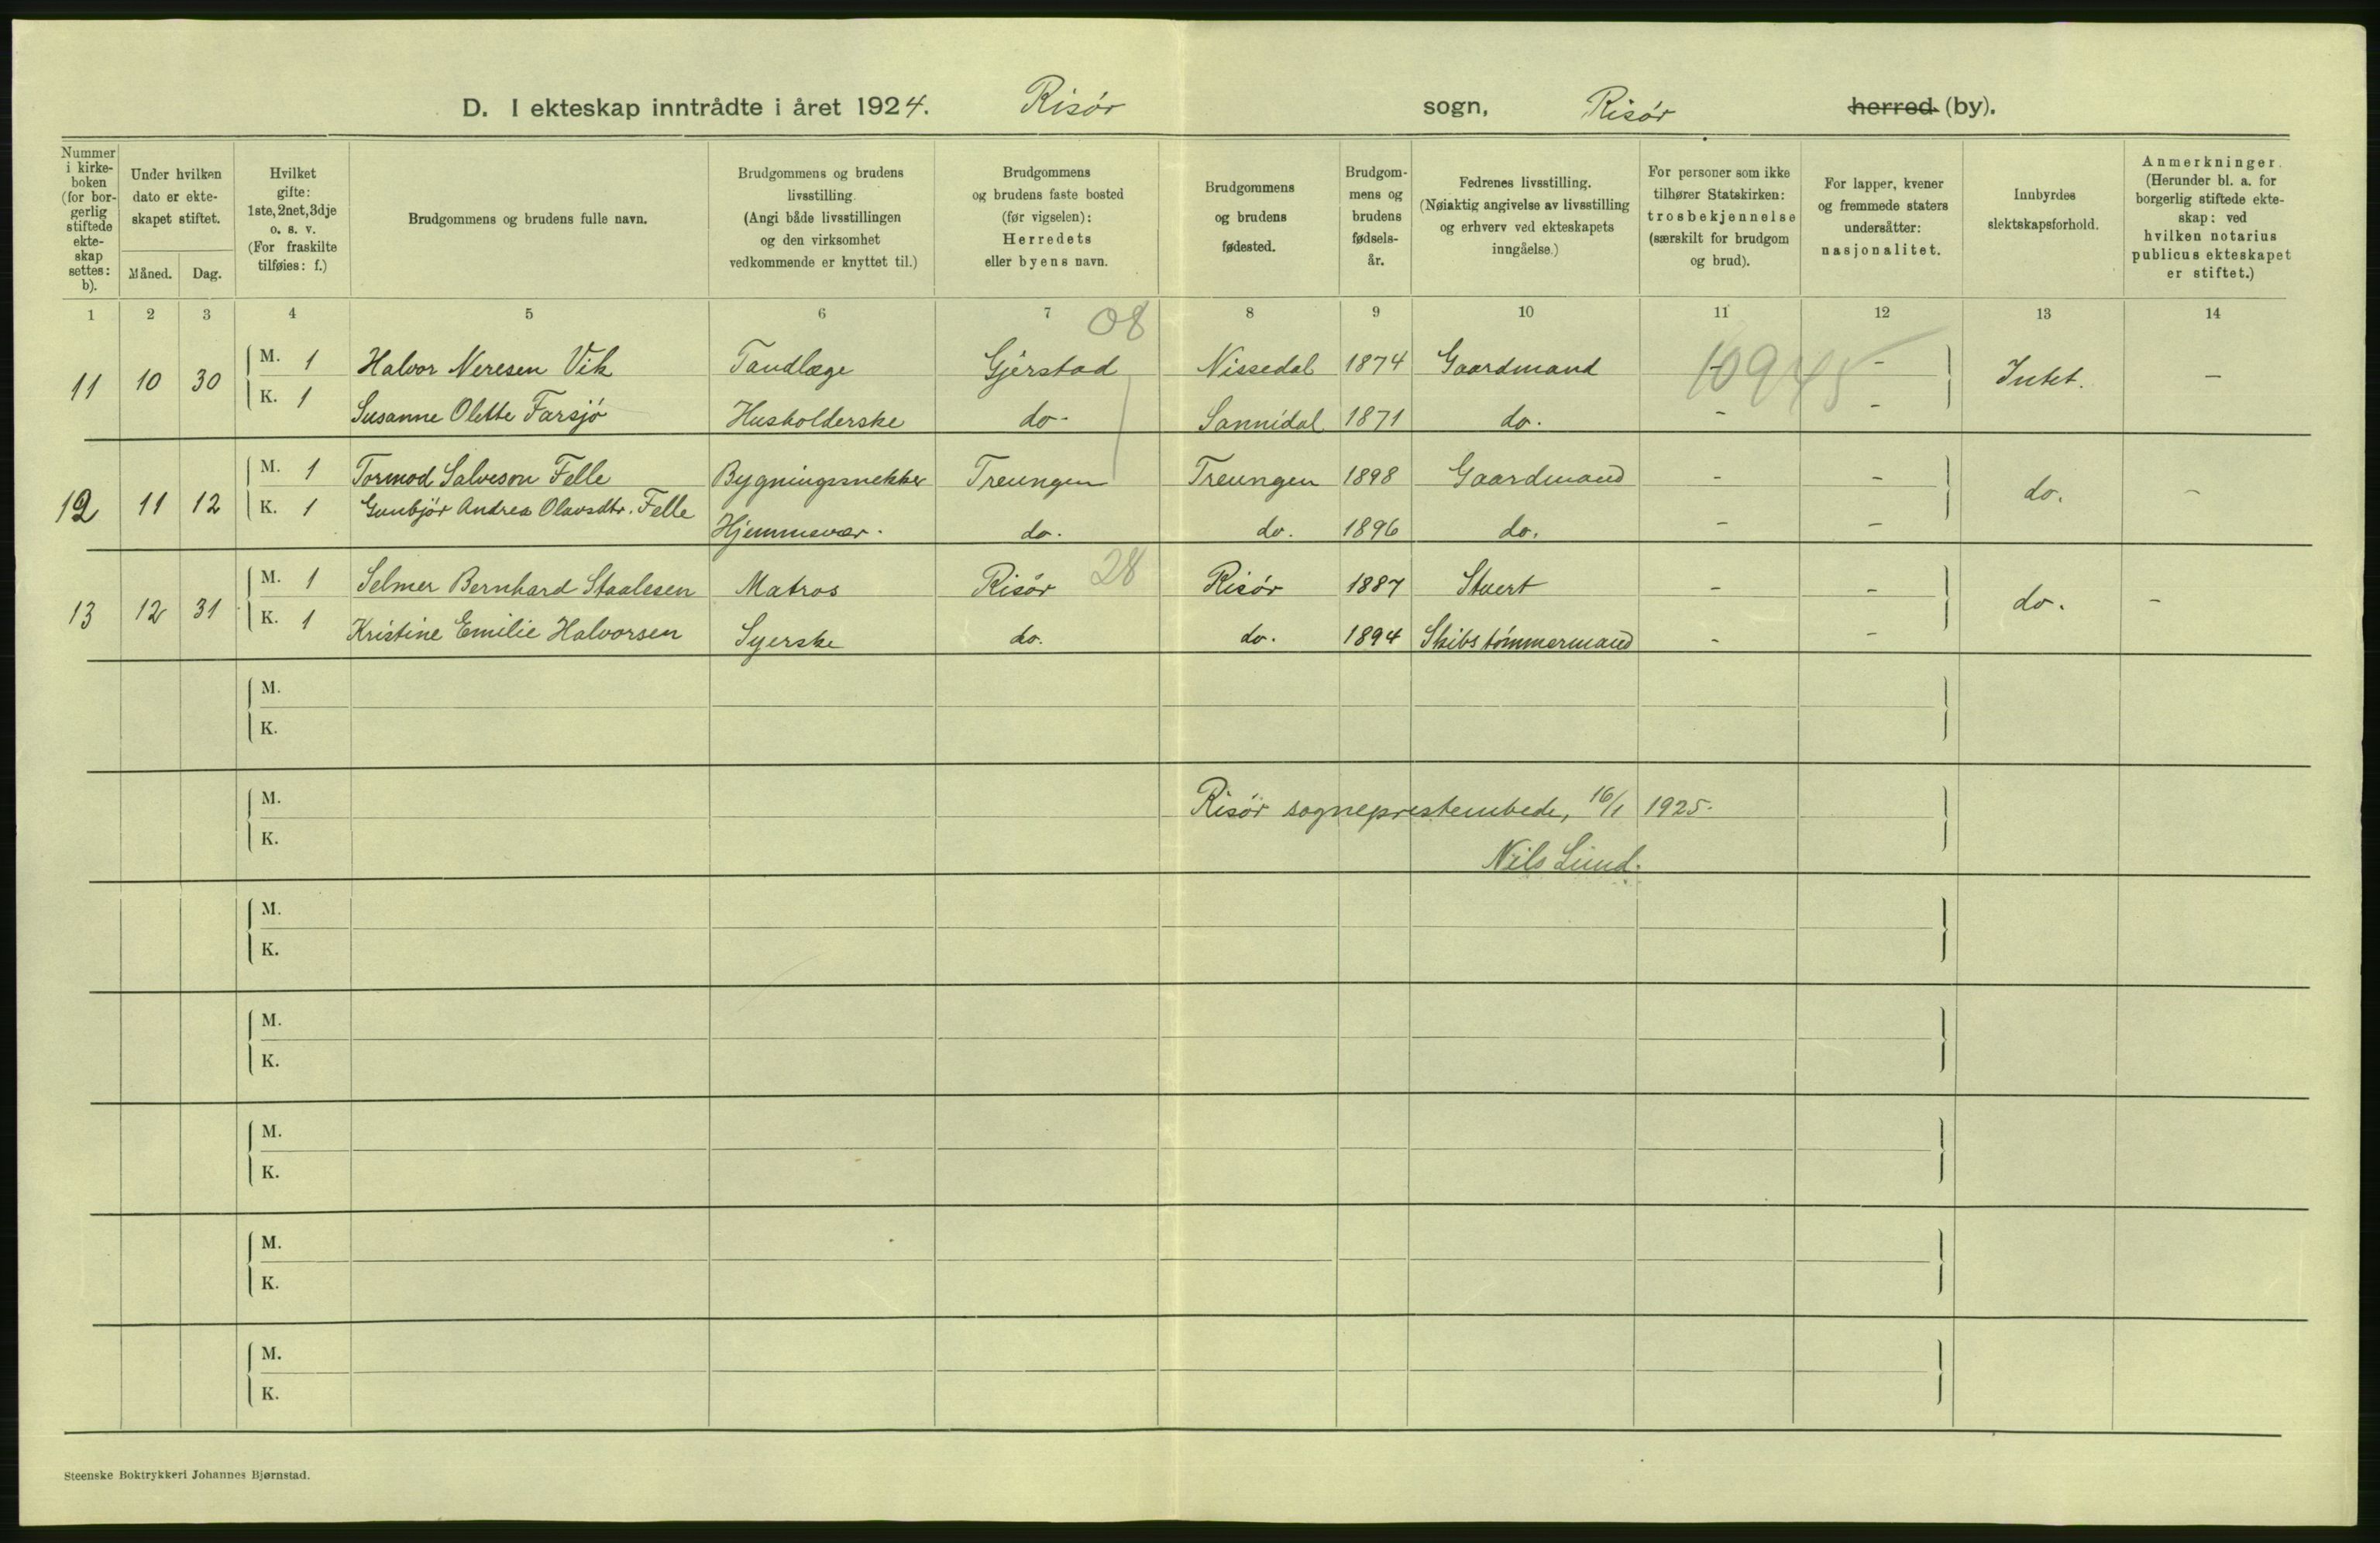 D. I ekteskap inntrådte i året 1924. Risör sogn, Risör herred (by).
Nummer i kirkeboken (for borgerlig stiftede ekteskap settes: b).
Under hvilken dato er ekteskapet stiftet.
Måned.
Dag.
Hvilket gifte: 1ste, 2net, 3dje o. s. v. (For fraskilte tilføies: f.)
Brudgommens og brudens fulle navn.
Brudgommens og brudens livsstilling. (Angi både livsstillingen og den virksomhet vedkommende er knyttet til.)
Brudgommens og brudens faste bosted (før vigselen): Herredets eller byens navn.
Brudgommens og brudens fødested.
Brudgommens og brudens fødselsår.
Fedrenes livsstilling. (Nøiaktig angivelse av livsstilling og erhverv ved ekteskapets inngåelse.)
For personer som ikke tilhører Statskirken: trosbekjennelse (særskilt for brudgom og brud).
For lapper, kvener og fremmede staters undersåtter: nasjonalitet.
Innbyrdes slektskapsforhold.
Anmerkninger. (Herunder bl. a. for borgerlig stiftede ekteskap: ved hvilken notarius publicus ekteskapet er stiftet.)
1 2 3 4 5 6 7 8 9 10 11 12 13 14
08
11 10 30 M. 1 Halvor Neresen Vik Tandlæge Gjerstad Nissedal 1874 Gaardmand - - Intet. -
10945
K. 1 Susanne Olette Farsjö Husholderske do. Sannidal 1871 do. - -
12 11 12 M. 1 Tormod Salveson Felle Bygningssnekker Treungen Treungen 1898 Gaardmand - - do. -
K. 1 Gunbjör Andrea Olavsdtr. Felle Hjemmevær. do. do. 1896 do. - -
28
13 12 31 M. 1 Selmer Bernhard Staalesen Matros Risör Risör 1887 Stuert - - do. -
K. 1 Kristine Emilie Halvorsen Syerske do. do. 1894 Skibstömmermand - -
M.
K.
M.
Risör sogneprestembede, 16/1 1925.
K.
Nils Lund.
M.
K.
M.
K.
M.
K.
M.
K.
M.
K.
Steenske Boktrykkeri Johannes Bjørnstad.